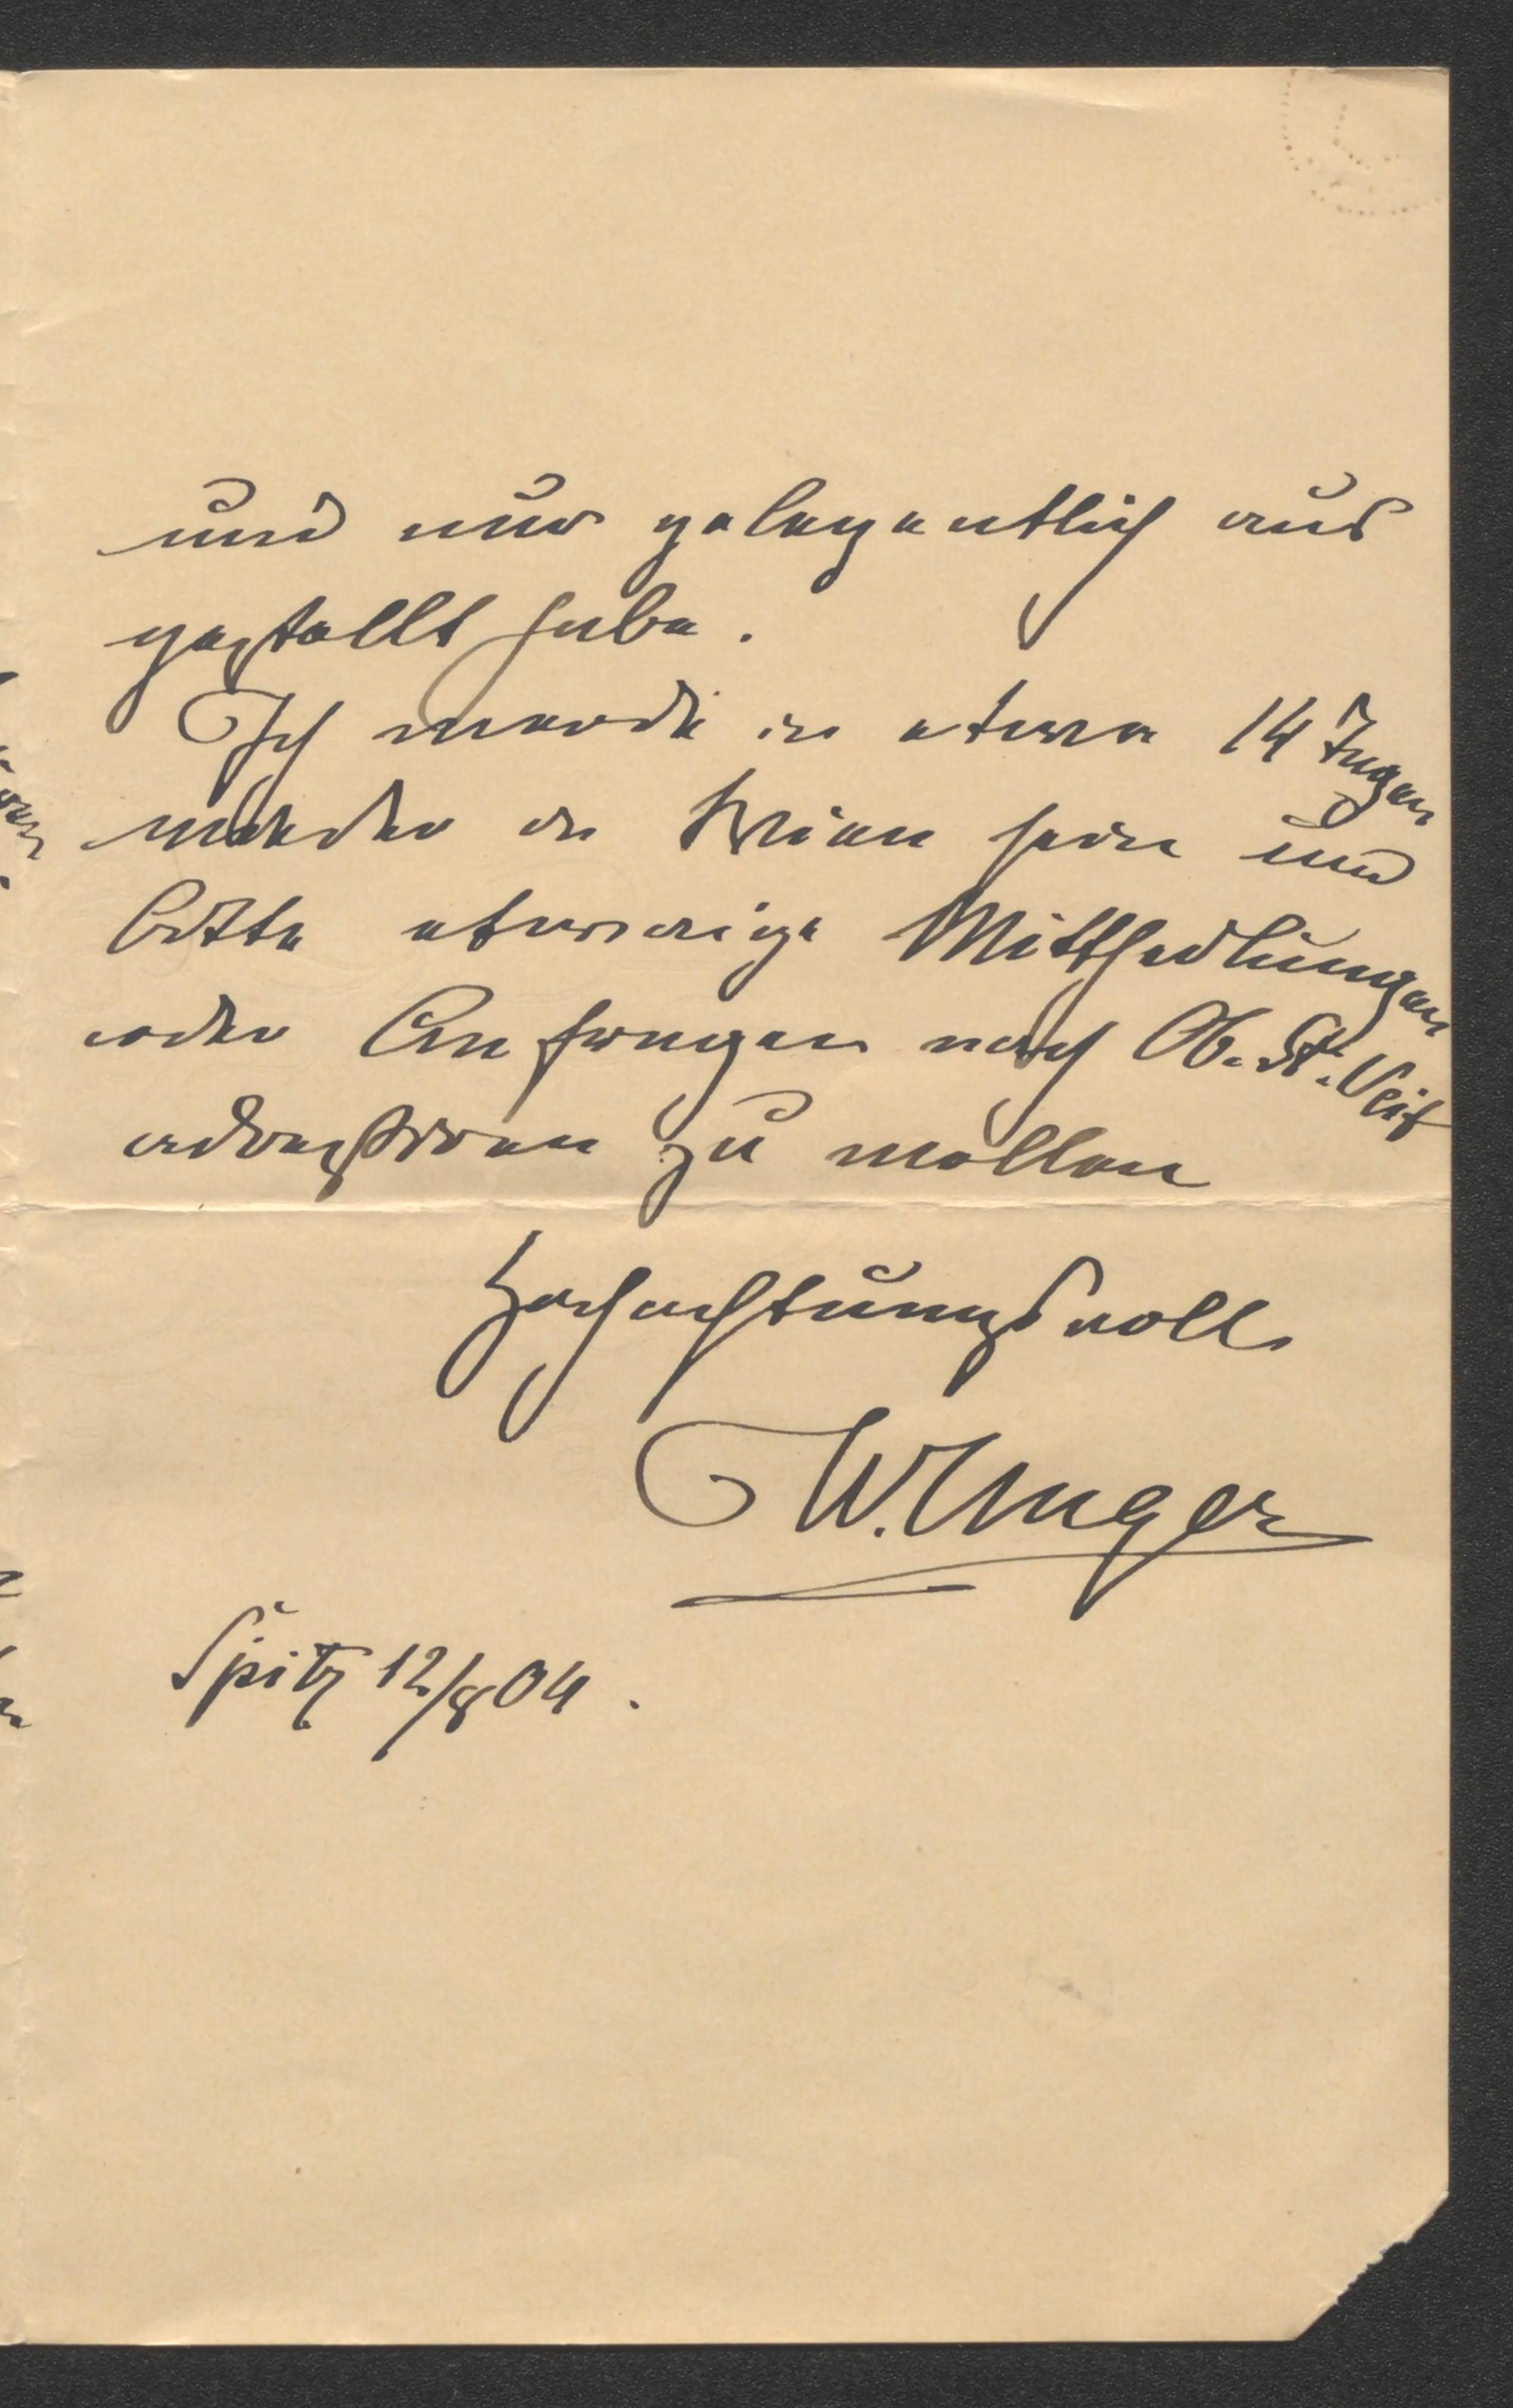 und nur gelegentlich aus
gestellt habe.
Ich werde in etwa 14 Tagen
wieder in Wien sein und
bitte etwaige Mittheilungen
oder Anfragen nach Ob. St. Veit
adressiren zu wollen
Hochachtungsvoll
W. Unger
Spitz 12/8 04.